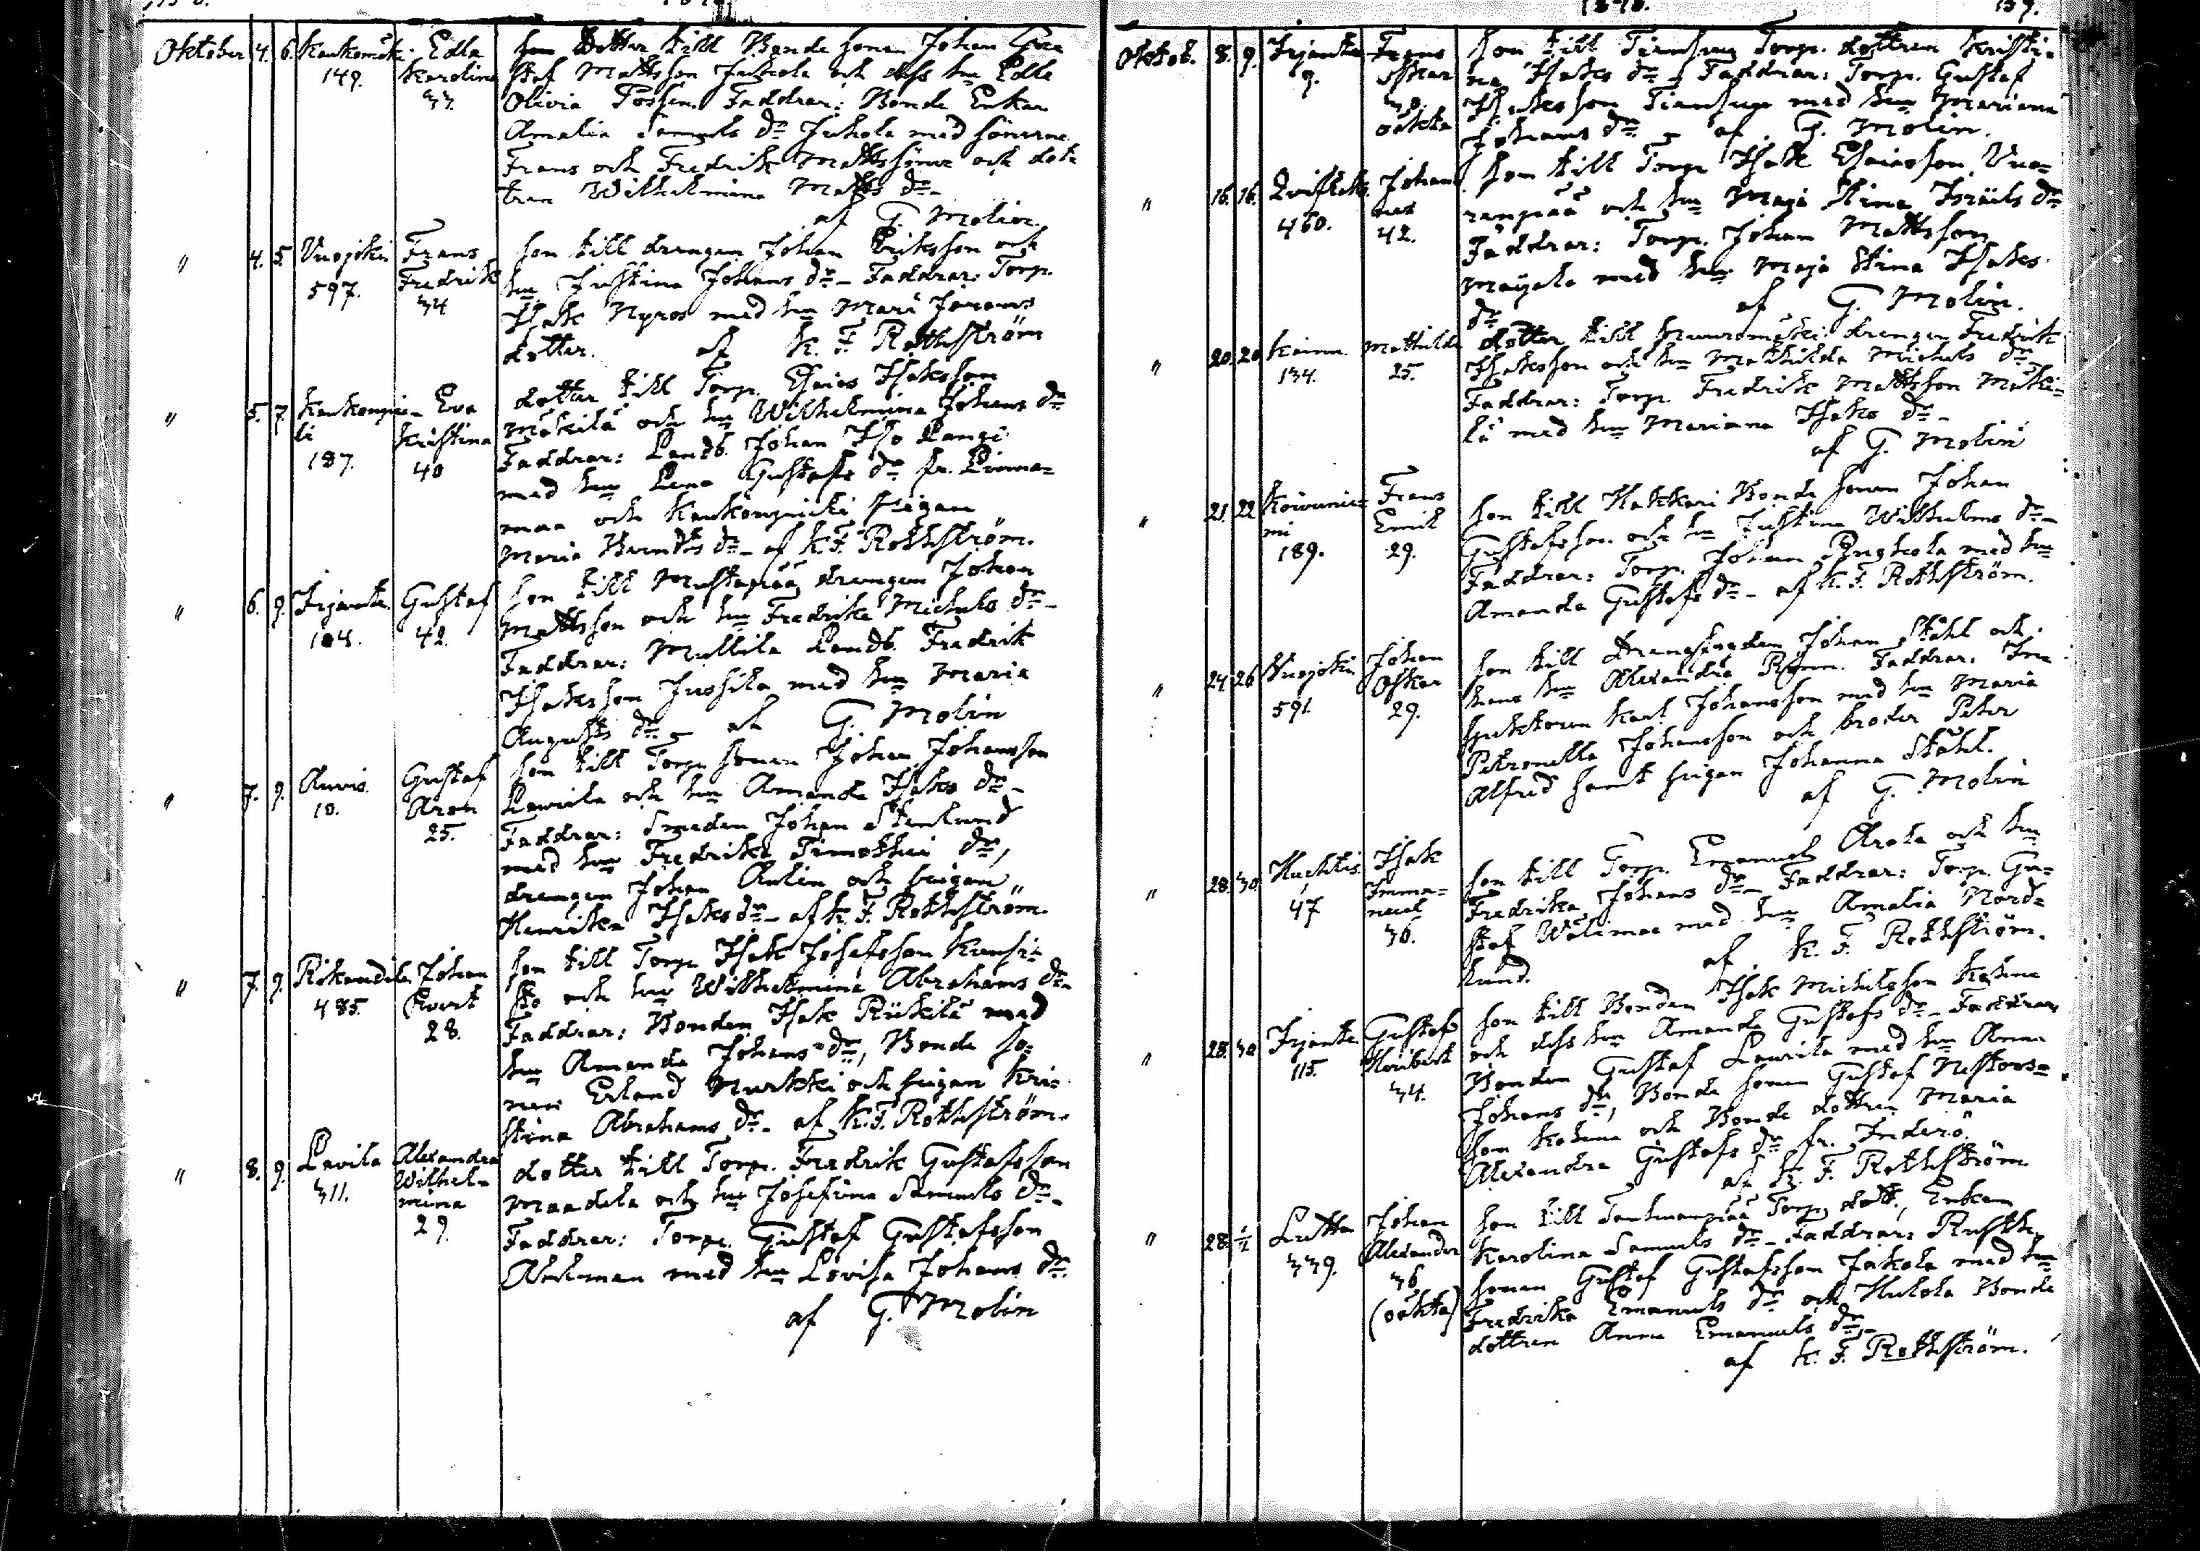 1878.
139.
Oktober 4. 6. Kaukomäki 149. Edla Karolina 33.
Dotter till Bonde sonen Johan Gus
staf Mattsson Juhola och dess hu Edla
Olivia Faddrar: Bonde Enkan
Amalia Samuels dr Juhola med sönerna
Frans och Fredrik Mattssöner och dot
tren Wilhelmina Matts dr
af G. Molin.
" 4. 5. Vuojoki 597. Frans Fredrik 34
son till drengen Johan Eriksson och
hu Justina Johans dr Faddrar: Torp.
Isak Nyroos med hu Maria
dotter. af K. F. Rothström
" 5. 7. 187. Eva Kristina 40
dotter till Torp. Esaias Isaksson
Mäkilä och hu Wilhelmina Johans dr
Faddrar: Landb. Johan Iso Pangi
med hu Lena Gustafs dr fr. Pinna=
maa och pigan
Maria dr af K. F. Rothström.
" 6. 9. Irjanta 104. Gustaf 42.
son till Mustapää drengen Johan
Mattsson och hu Fredrika Michels dr
Faddrar: Mullila Landb. Fredrik
Isaksson Jussila med hu Maria
Augusts dr af G. Molin
" 7. 9. Auvis 10. Gustaf Aron 25.
son till Torp. sonen Johan Johansson
Laurila och hu Amanda Isaks dr
Faddrar: Smeden Johan Stenlund
med hu Fredrika Timothei dr,
drengen Johan Aulin och pigan
Henrika Isaks dr af K. F. Rothström.
" 7. 9. Rikandila 485. Johan Evert 28.
son till Torp. Isak Josefsson Kansi=
sto och hu Wilhelmina Abrahams dr
Faddrar: Bonden Isak Rükilä med
hu Amanda Johans dr, Bonde so=
nen Erland Nurkki och pigan Kri=
stina Abrahams dr af K. F. Rothström.
" 8. 9. Lavila 311. Alexandra Wilhel= mina 29.
dotter till Torp. Fredrik Gustafsson
Maandela och hu Josefina Samuels dr
Faddrar: Torp. Gustaf Gustafsson
med hu Lovisa Johans dr
af G. Molin
Oktob. 8. 9. Irjanta 9. Frans Oskar 30. oäkta
son till Torp. dottren Kristi=
na Isaks dr Faddrar: Torp. Gustaf
Isaksson med hu Mariana
Johans dr af G. Molin.
" 15. 16. 460. Johan nes 42.
son till Torp. Isak Esaiasson Vua=
renpää och hu Maja Stina Israels dr
Faddrar: Torp. Johan Mattsson
Mäyälä med hu Maja Stina Isaks
dr af G. Molin.
" 20. 20. Kainu 134. Mathilda 25.
dotter till drengen Fredrik
Isaksson och hu Mathilda Michels dr
Faddrar: Torp. Fredrik Mattsson Mäki=
lä med hu Mariana Isaks dr
af G. Molin
" 21. 22. Koivunie= mi 189. Frans Emil 29.
son till Hakkari Bonde sonen Johan
Gustafsson och hu Justina Wilhelms dr
Faddrar: Torp. Johan med hu
Amanda Gustafs dr af K. F. Rothström.
" 24. 26. Vuojoki 591. Johan Oskar 29.
son till Johan Ståhl och
hans hu Alexandra Faddrar: In=
spektoren Karl Johansson med hu Maria
Petronella Johansson och broder Peter
Alfred samt pigan Johanna Ståhl.
af G. Molin
" 28. 30. Huchtis 47 Isak Imma= nuel 36.
son till Torp. Emanuel Arola och hu
Fredrika Johans dr Faddrar: Torp. Gu=
staf Wälimaa med hu Amalia Nord=
lund. af K. F. Rothström.
" 28. 30. Irjanta 115. Gustaf Heribert 34.
son till Bonden Isak Michelsson Kahma
och dess hu Amanda Gustafs dr Faddrar
Bonden Gustaf Laurila med hu Anna
Johans dr, Bonde sonen Gustaf Nestors=
son Kahma och Bonde dottren Maria
Alexandra Gustafs dr fr. Inderö
af K. F. Rothström
" 28. 1/2 Lutta 339. Johan Alexander 36 (oäkta)
son till Torp. dott., Enkan
Karolina Samuels dr Faddrar: Rusth.
sonen Gustaf Gustafsson Jakola med hu
Fredrika Emanuels dr och Bonde
dottren Anna Emanuels dr
af K. F. Rothström.